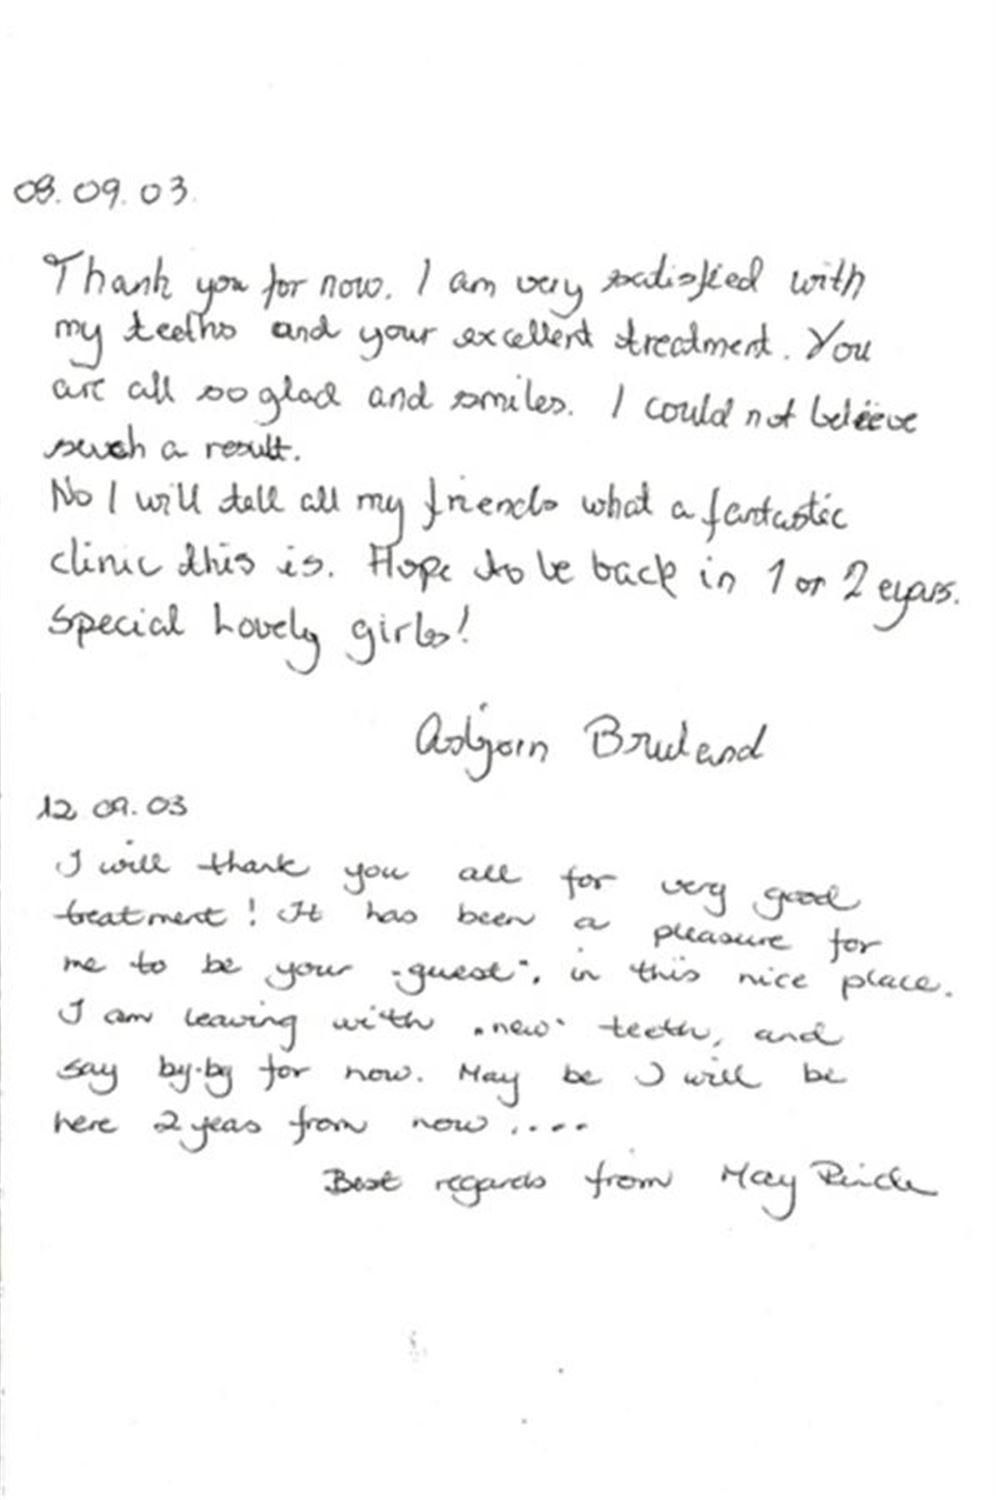 08.09.03.
Thank you for now. I am very satisfied with
my teeths and your excellent treatment. You
are all so glad and smiles. I could not beleeve
such a result.
No I will tell all my friends what a fantastic
clinic this is. Hope to be back in 1 or 2 eyars.
Special Lovely girls!
Asbjorn Bruland
12.09.03
I will thank you all for very good
treatment! It has been a pleasure for
me to be your "guest", in this nice place.
I am leaving with "new" teeth, and
say by-by for now. May be I will be
here 2 yeas from now....
Best regards from May